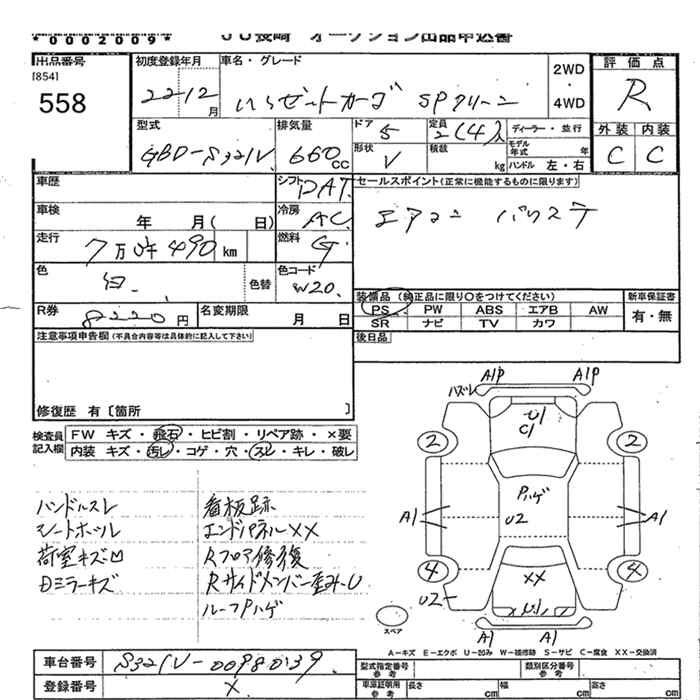 *0002009*
JU長崎 オークション出品申込書
出品番号
[854]
558
初度登録年月
22 12 月
車名・グレード
ハイゼットカーゴ SPクリーン
2WD
・
4WD
評価点
R
外装 内装
C C
型式
GBD-S321V
排気量
660 CC
ドア
5
定員
2(4)人
形状
V
積載
kg
ディーラー・並行
モデル年式 年
ハンドル 左・右
車歴
シフト
DAT
セールスポイント(正常に機能するものに限ります)
エアコン パワステ
車検 年 月( 日)
冷房
AC
走行
7万0千490 km
燃料
G
色
白
色替
色コード
W20
R券
8220 円
名変期限 月 日
装備品 (純正品に限り○をつけてください)
新車保証書
PS PW ABS エアB AW
SR ナビ TV カワ
有・無
後日品
注意事項申告欄(不具合内容等は具体的に記入して下さい)
修復歴 有〔箇所 〕
検査員記入欄
FW キズ・飛石・ヒビ割・リペア跡・×要
内装 キズ・汚レ・コゲ・穴・スレ・キレ・破レ
ハンドルスレ
シートホール
荷室キズ凹
Dミラーキズ
看板跡
エンドパネルXX
Rフロア修復
Rサイドメンバー歪み-U
ルーフPハゲ
ハズレ
A1P A1P
U1
C1
2 2
Pハゲ
U2
A1 A1
4 4
XX
U2
U1
A1 A1
スペア
A-キズ E-エクボ U-凹み W-補修跡 S-サビ C-腐食 XX-交換済
車台番号
S321V-0098039
登録番号
X
型式指定番号
参考
類別区分番号
参考
車庫証明用
参考
長さ cm
幅 cm
高さ cm